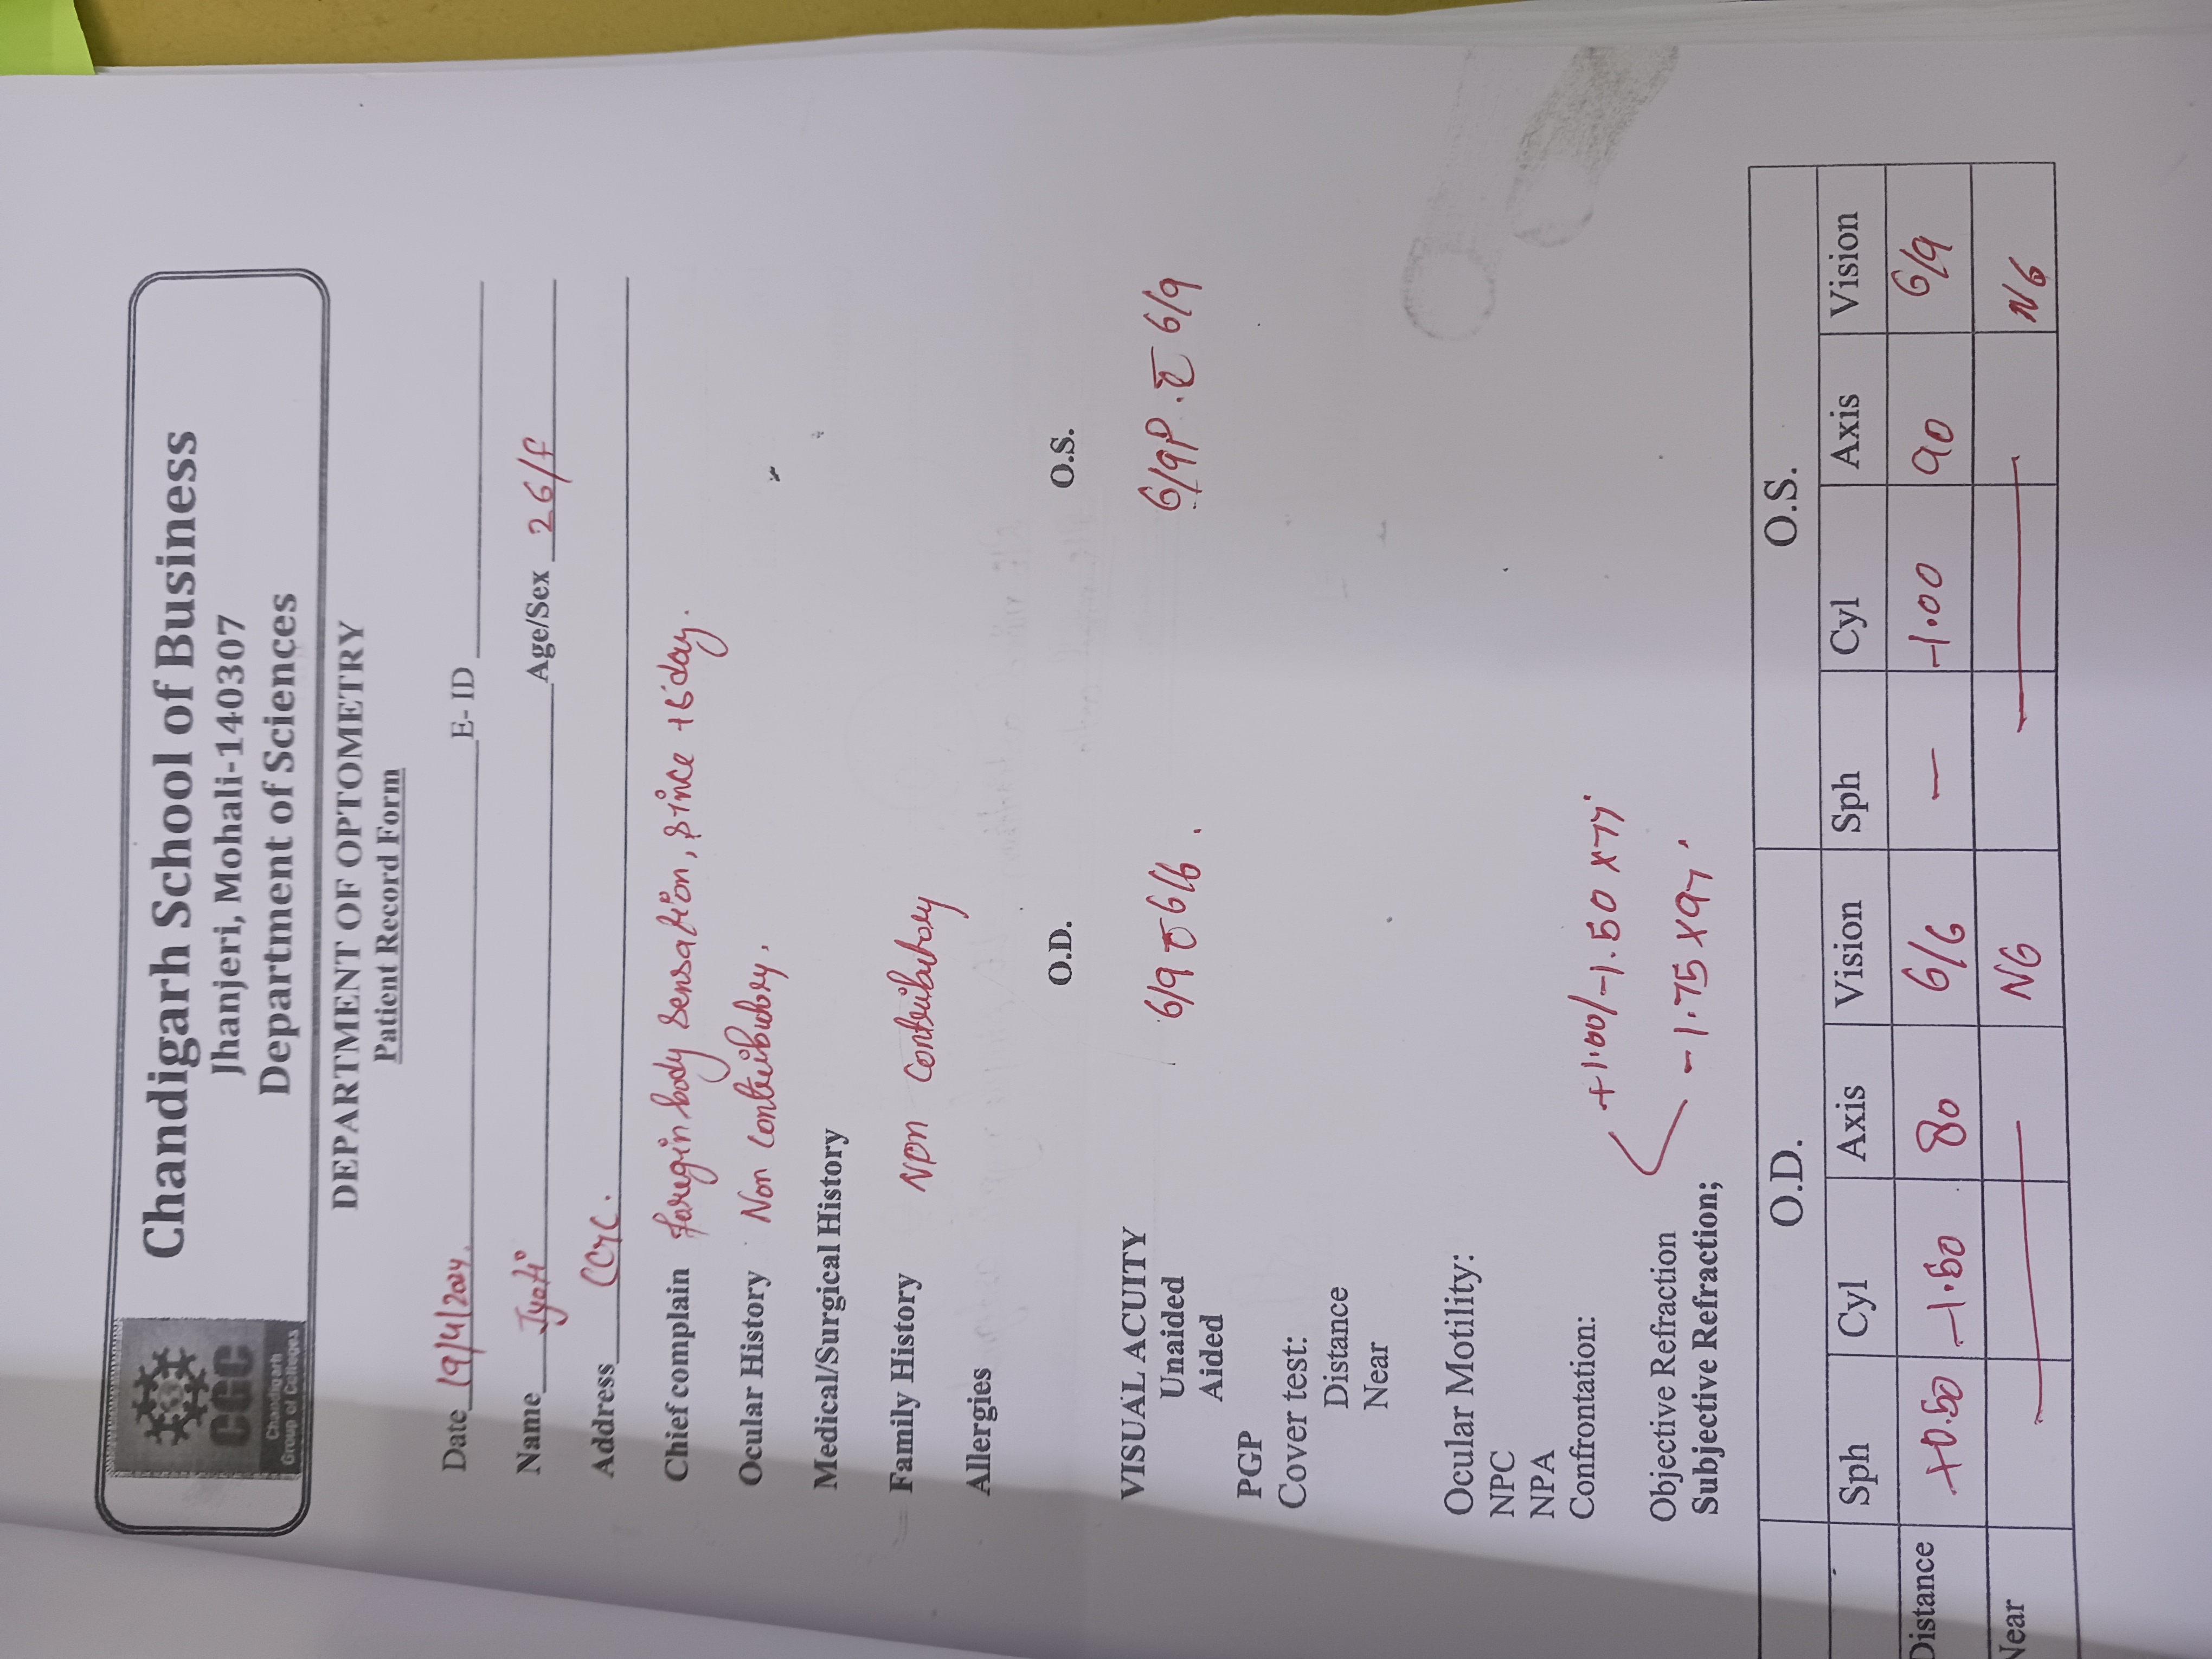 CGC
Chandigarh
Group of Colleges
Chandigarh School of Business
Jhanjeri, Mohali-140307
Department of Sciences
DEPARTMENT OF OPTOMETRY
Patient Record Form
Date 19/4/2024. E- ID
Name Jyoti Age/Sex 26/f
Address CGC.
Chief complain foregin body sensation, since day.
Ocular History Non contributory.
Medical/Surgical History
Family History Non contributory
Allergies
O.D. O.S.
VISUAL ACUITY
Unaided 6/9 c̄ 6/6. 6/9P. c̄ 6/9
Aided
PGP
Cover test:
Distance
Near
Ocular Motility:
NPC
NPA
Confrontation:
+1.00/-1.50 x77°
Objective Refraction
-1.75 x97°
Subjective Refraction;
O.D. O.S.
Sph Cyl Axis Vision Sph Cyl Axis Vision
Distance +0.50 -1.50 80 6/6 — -1.00 90 6/9
Near — N6 — N6